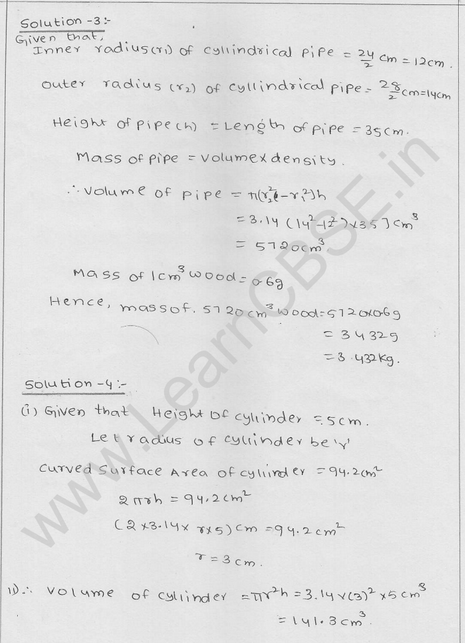 Solution-3:-
Given that,
Inner radius(r1) of cyllindrical pipe = 24/2 cm = 12cm.
Outer radius (r2) of cyllindrical pipe = 28/2 cm = 14cm
Height of pipe(h) = Length of pipe = 35cm.
Mass of pipe = Volume x density.
∴ Volume of pipe = π(r2²-r1²)h
= 3.14 (14²-12²) x 35] cm³
= 5720cm³
Mass of 1cm³ wood = 0.6g
Hence, mass of. 5720 cm³ wood = 5720x0.6g
= 3432g
= 3.432kg.
Solution-4:-
(i) Given that Height of cylinder = 5cm.
Let radius of cylinder be 'r'
Curved Surface Area of cylinder = 94.2cm²
2πrh = 94.2cm²
(2 x 3.14 x r x 5) cm = 94.2 cm²
r = 3cm.
ii) ∴ Volume of cylinder = πr²h = 3.14 x (3)² x 5 cm³
= 141.3cm³
www.LearnCBSE.in